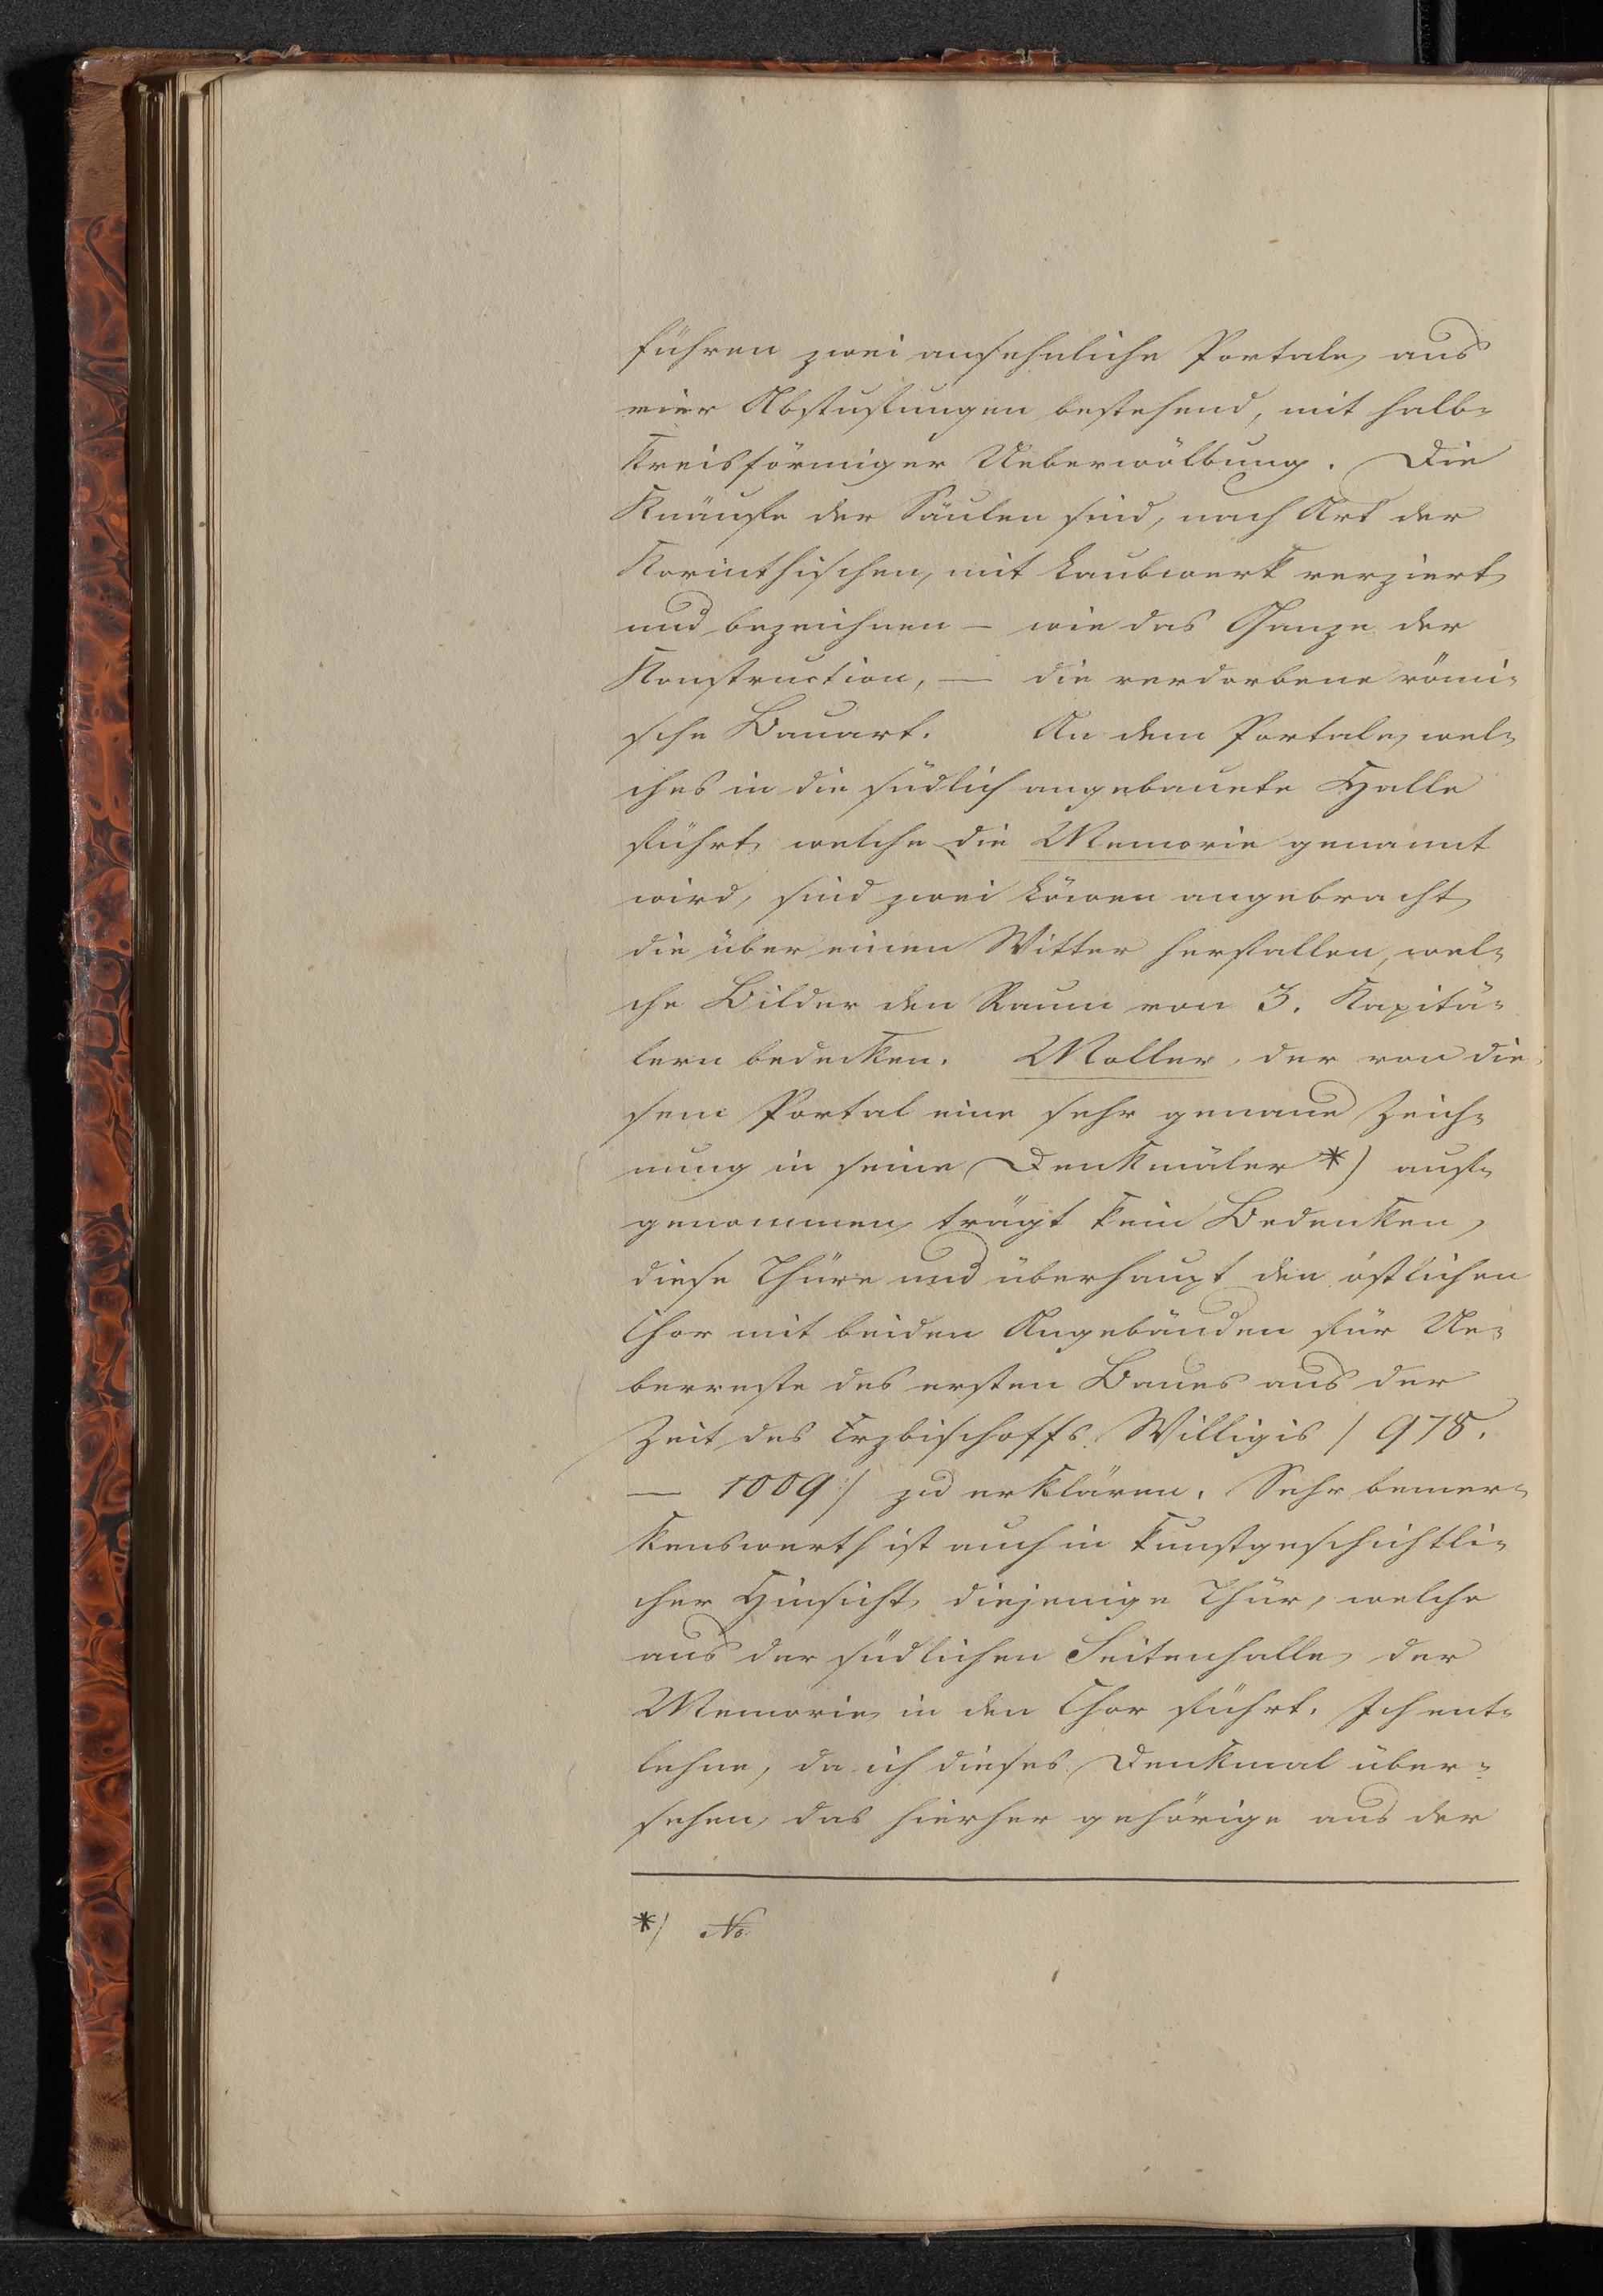 führen zwei ansehnliche Portale, aus
vier Abstufungen bestehend, mit halb-
kreisförmiger Ueberwölbung. Die
Knäufe der Säulen sind, nach Art der
Korinthischen, mit Laubwerk verziert,
und bezeichnen – wie das Ganze der
Konstruction, – die verdorbene römi-
sche Bauart. An dem Portale, wel-
ches in die südlich angebauete Halle
führt, welche die Memorie genannt
wird, sind zwei Löwen angebracht,
die über einen Witter herfallen, wel-
che Bilder den Raum von 3. Kapitä-
lern bedecken. Moller, der von die-
sem Portal eine sehr genaue Zeich-
nung in seine Denkmäler *) auf-
genommen, trägt kein Bedenken,
diese Thüre und überhaupt den östlichen
Chor mit beiden Angebäuden für Ue-
berreste des ersten Baues aus der
Zeit des Erzbischoffs Willigis / 978.
– 1009 :/ zu erklären. Sehr bemer-
kenswerth ist auch in kunstgeschichtli-
cher Hinsicht, diejenige Thür, welche
aus der südlichen Seitenhalle, der
Memorie, in den Chor führt. Ich ent-
lehne, da ich dieses Denkmal über-
sehen, das hierher gehörige aus der
*) No